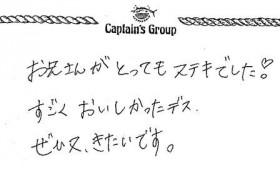 Captain's Group
お兄さんがとっても ステキでした!♡
すごく おいしかったデス.
ぜひ又、きたいです。